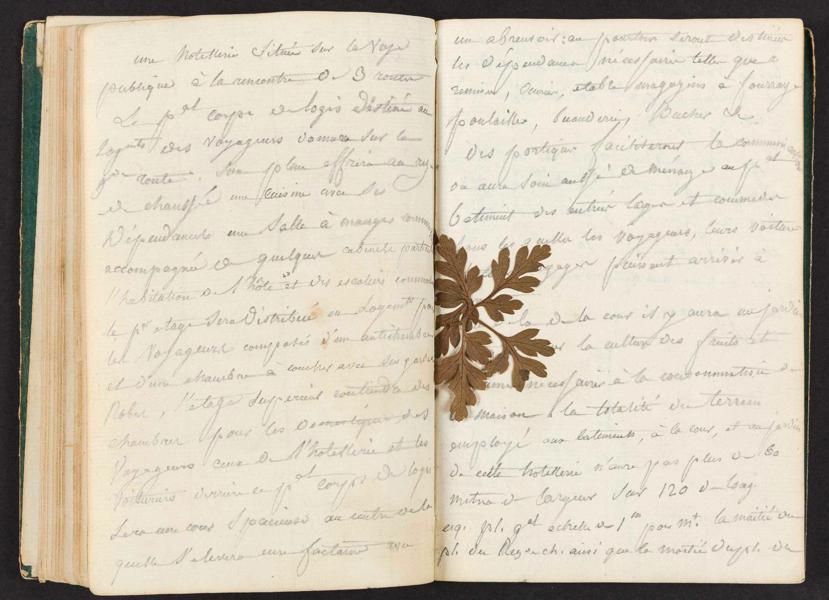 une hotellerie située sur la voye
publique à la rencontre de 3 routes
Le pal corps de logis destiné au
des voyageurs sur la
gde route. Son plan offrira au rez
de chaussée une cuisine avec ses
dépendances une salle à manger commune
accompagné de quelques cabinets
l'habitation de l'hôte et des escaliers
le pr etage sera distribué en logemts pour
les voyageurs composés d'un antichambre
et d'une chambre à coucher avec
Robes, l'etage superieur contiendra des
chambres pour les domestiques des
voyageurs ceux de l'hotellerie et les
voituriers derriere ce pal corps de logis
sera une cour spacieuse au centre de la
quelle s'elevera une fontaine avec
un abreuvoir: au pourtour seront destinées
les dépendances nécessaires telles que
remises, écuries, etables magazins a fourrage
poulailler, buanderie, Bucher &c
Des portiques faciliteront la communication
on aura soin aussi de ménager au pal
batiment des entrées larges et commodes
les quelles les voyageurs, leurs voitures
puissent arriver à
de la cour il y aura un jardin
la culture des fruits et
nécessaires à la consommation de
maison la totalité du terrein
employé aux batiments, à la cour, et au jardin
de cette hotellerie n'aura pas plus de 60
metres de largeur sur 120 de long
pl. gal echelle de 1m pour mt. la moitié du
pl. du Rez de ch. ainsi que la moitié du pl. du